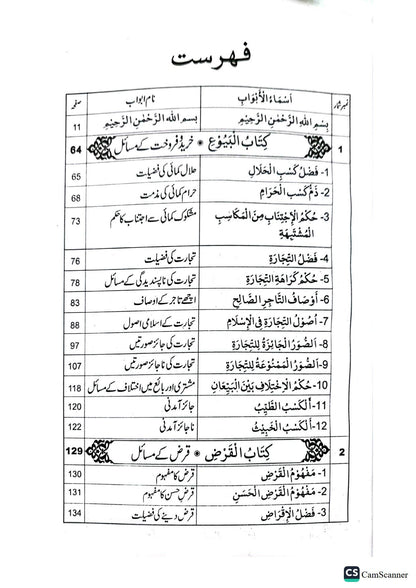 فہرست
نمبر شمار اَسْمَاءُ الْأَبْوَابِ نام ابواب صفحہ
بِسْمِ اللهِ الرَّحْمٰنِ الرَّحِيْمِ بسم الله الرَّحْمٰنِ الرَّحِيْمِ 11
1 كِتَابُ الْبُيُوْعِ * خرید و فروخت کے مسائل 64
1- فَضْلُ كَسْبِ الْحَلَالِ حلال کمائی کی فضیلت 65
2- ذَمُّ كَسْبِ الْحَرَامِ حرام کمائی کی مذمت 68
3- حُكْمُ الْاِجْتِنَابِ مِنَ الْمَكَاسِبِ مشکوک کمائی سے اجتناب کا حکم 73
الْمُشْتَبِهَةِ
4- فَضْلُ التِّجَارَةِ تجارت کی فضیلت 76
5- حُكْمُ كَرَاهَةِ التِّجَارَةِ تجارت کی ناپسندیدگی کے مسائل 78
6- أَوْصَافُ التَّاجِرِ الصَّالِحِ اچھے تاجر کے اوصاف 83
7- أُصُوْلُ التِّجَارَةِ فِي الْإِسْلَامِ تجارت کے اسلامی اصول 88
8- اَلصُّوَرُ الْجَائِزَةُ لِلتِّجَارَةِ تجارت کی جائز صورتیں 97
9- اَلصُّوَرُ الْمَمْنُوْعَةُ لِلتِّجَارَةِ تجارت کی ناجائز صورتیں 107
10- حُكْمُ الْاِخْتِلَافِ بَيْنَ الْبَيِّعَانِ مشتری اور بائع میں اختلاف کے مسائل 118
11- اَلْكَسْبُ الطَّيِّبُ جائز آمدنی 120
12- اَلْكَسْبُ الْخَبِيْثُ ناجائز آمدنی 122
2 كِتَابُ الْقَرْضِ * قرض کے مسائل 129
1- مَفْهُوْمُ الْقَرْضِ قرض کا مفہوم 130
2- مَفْهُوْمُ الْقَرْضِ الْحَسَنِ قرض حسن کا مفہوم 131
3- فَضْلُ الْإِقْرَاضِ قرض دینے کی فضیلت 134
CS CamScanner